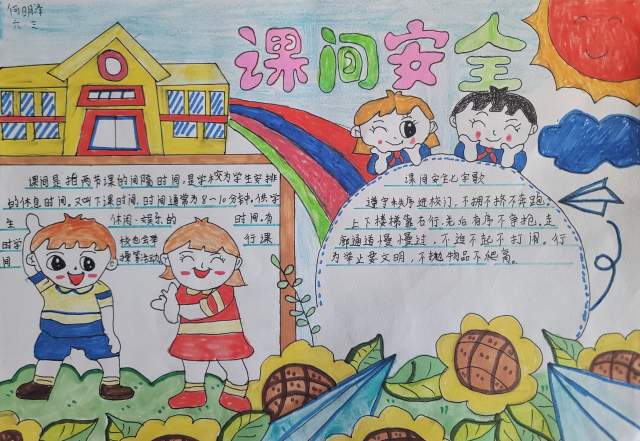 何明泽
六、三
课间安全
课间是指两节课的间隔时间,是学校为学生安排
的休息时间。又叫下课时间,时间通常为8-10分钟。供学
生 休闲、娱乐的 时间,有
时学 校也会举 行课
间 操等活动
课间安全七字歌
遵守秩序进校门,不拥不挤不奔跑。
上下楼梯靠右行,先后有序不争抢。走
廊通道慢慢过,不追不起不打闹。行
为举止要文明,不抛物品不爬高。